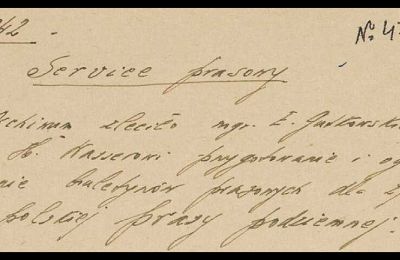 42.
№ 4
Service prasowy
Archiwum zleciło mgr. E. Gutkowski
H. Wasserowi przygotowanie i
nie buletynów prasowych dla ży
polskiej prasy podziemnej.